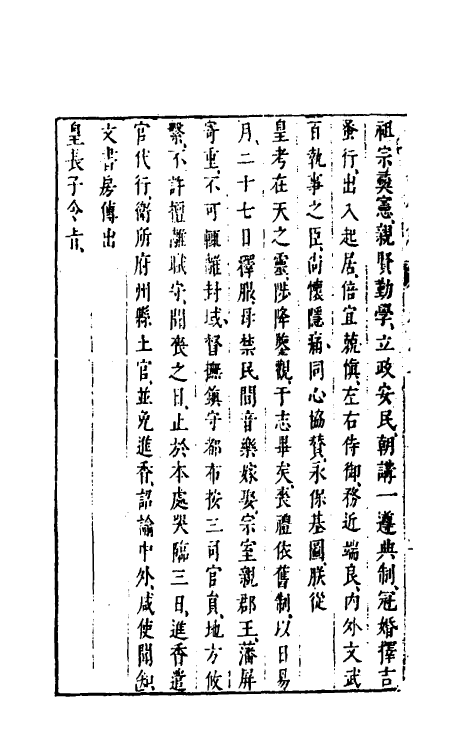 祖宗彝憲、親賢勤學、立政安民、朝講一遵典制、冠婚擇吉
蚤行、出入起居、倍宜兢慎、左右侍御、務近端良、內外文武
百執事之臣、尚懷隱痛、同心協贊、永保基圖、朕從
皇考在天之靈、陟降鑒觀、于志畢矣、喪禮依舊制、以日易
月、二十七日釋服、毋禁民間音樂嫁娶、宗室親郡王、藩屏
寄重、不可輒離封域、督撫鎮守都布按三司官員、地方攸
繫、不許擅離職守、聞喪之日、止於本處哭臨三日、進香遣
官代行、衛所府州縣土官、並免進香、詔諭中外、咸使聞知、
文書房傳出
皇長子令旨、